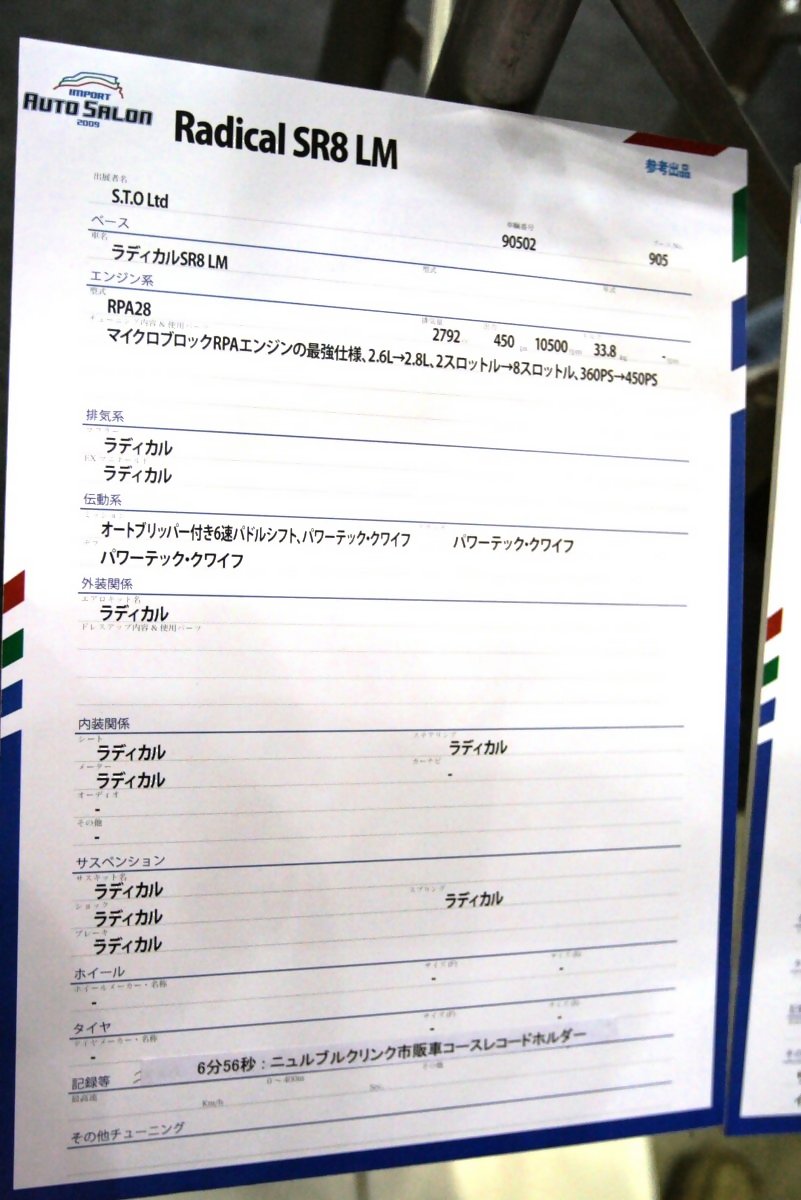 IMPORT
AUTO SALON
2009
Radical SR8 LM
参考出品
出展者名
S.T.O Ltd
車輌番号
90502
905
ベース
車名
ラディカルSR8 LM
型式
年式
エンジン系
型式
RPA28
排気量
2792
450
10500
33.8
-
チューニング内容&使用パーツ
マイクロブロックRPAエンジンの最強仕様、2.6L→2.8L、2スロットル→8スロットル、360PS→450PS
排気系
マフラー
ラディカル
EXマニホールド
ラディカル
伝動系
ミッション
オートブリッパー付き6速パドルシフト、パワーテック・クワイフ
パワーテック・クワイフ
デフ
パワーテック・クワイフ
外装関係
エアロキット名
ラディカル
ドレスアップ内容&使用パーツ
内装関係
シート
ラディカル
ステアリング
ラディカル
メーター
ラディカル
カーナビ
-
オーディオ
-
その他
-
サスペンション
サスキット名
ラディカル
ショック
ラディカル
スプリング
ラディカル
ブレーキ
ラディカル
ホイール
ホイールメーカー・名称
-
サイズ(F)
-
サイズ(R)
-
タイヤ
タイヤメーカー・名称
-
サイズ(F)
-
サイズ(R)
-
記録等
6分56秒：ニュルブルクリンク市販車コースレコードホルダー
最高速
Km/h
0～400m
Sec.
その他
その他チューニング